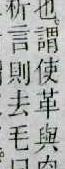 也謂使革與肉
析言則去毛曰